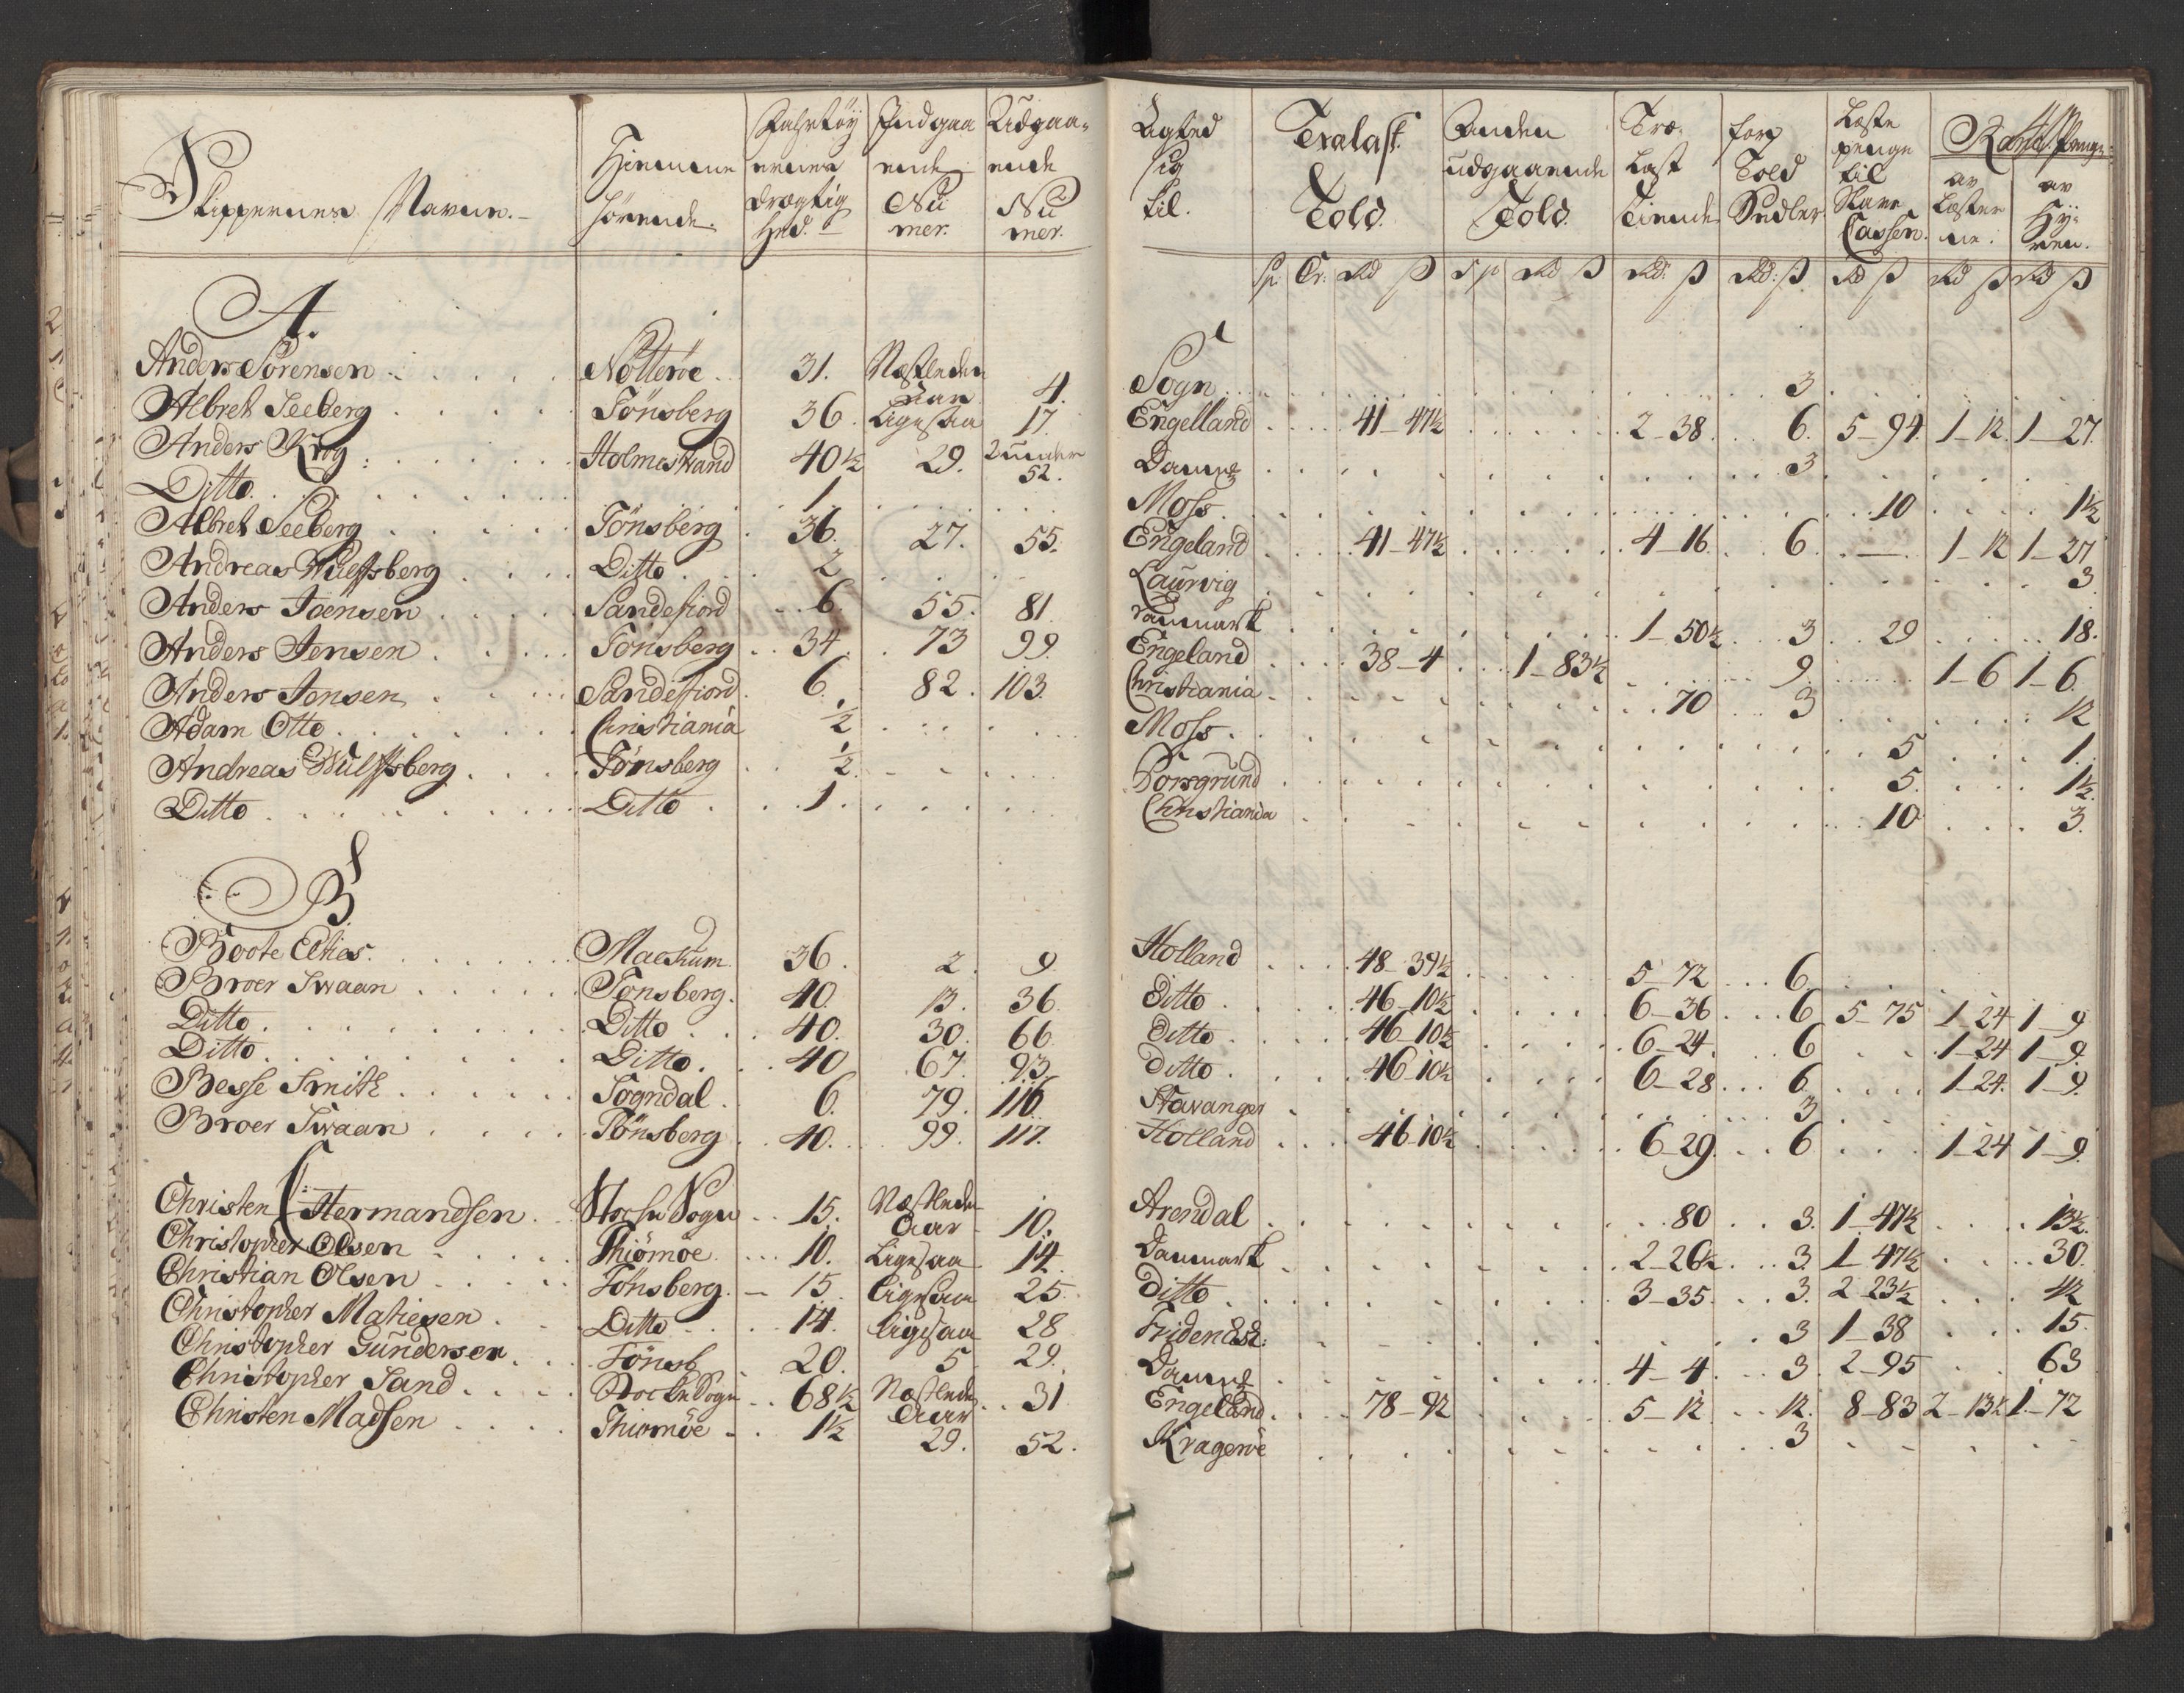 Skippernes Navne.
Hiemme hörende.
Fahrtöy ernes drægtig hed.
Indgaa ende Nü mer.
Udgaa- ende Nü mer.
Agted sig til.
Trælast Told.
Anden udgaaende Told.
Træ- Last Tiende
forp Told Sedler.
Læste penge til Slave Cassen.
av Læster ne.
av Hy- ren.
Sp. Tr. Rd ß Sp Rd ß Rd: ß Rd: ß Rd ß Rd ß Rd ß
A.
Anders Sörensen Nötteröe 31. Næstleden Aar 4. Sogn 3
Albret Seeberg Tönsberg 36. Ligesaa 17. Engelland 41-47½ 2-38. 6. 5-94. 1-12. 1-27.
Anders Krog Holmestrand 40½ 29. 52. Danmk 3
Ditto 1 Moss 10 1½
Albret Seeberg Tönsberg 36. 27. 55. Engeland 41-47½ 4-16. 6. 1-12 1-27
Andreas Wulfsberg Ditto 2 Laurvig 3
Anders Joensen Sandefiord 6 55. 81. Danmark 1-50½ 3 29 18.
Anders Jensen Tönsberg 34. 73 99. Engeland 38-4 1-83½ 9. 1-6 1-6
Anders Jonsen Sandefiord 6. 82. 103. Christiania 70 3 12
Adam Otto Christiania ½ Moss 5 1.
Andreas Wulfsberg Tönsberg ½ Porsgrund 5. 1½
Ditto Ditto 1. Christiania 10 3.
B
Boote Elties Mackum 36. 2 9 Holland 48-39½ 5-72 6
Broer Swaan Tönsberg. 40. 13. 36. Ditto 46-10½ 6-36 6 5-75 1-24 1-9
Ditto Ditto 40. 30. 66. Ditto 46-10½ 6-24. 6 1-24 1-9.
Ditto Ditto. 40 67. 93. Ditto 46-10½ 6-28 6 1-24. 1-9.
Besse Smith Sogndal 6. 79. 116. Stavanger 3
Broer Swaan Tönsberg 40. 99. 117. Holland 46-10½ 6-29. 6 1-24 1-9.
C:
Christen Hermandsen Stocke Sogn 15. Næstleden Aar 10. Arendal 80 3. 1-47½ 13½.
Christopher Olsen Thiömöe 10. Ligesaa 14. Danmark 2-26½ 3. 1-47½ 30.
Christian Olsen Tönsberg. 15 Ligesaa 25. Ditto 3-35. 3. 2-23½ 42
Christopher Mathiesen Ditto 14. Ligesaa 28 3 1-38 15.
Christopher Gundersen Tönsb 20. 5 29. Danmk 4-4 3. 2-95 63
Christopher Sand Stocke Sogn 68½ Næstleden Aar 31 Engeland 78-92 5-12 12. 8-83 2-13½ 1-72
Christen Madsen Thiomöe 1½ 29. 52. Krageröe 3